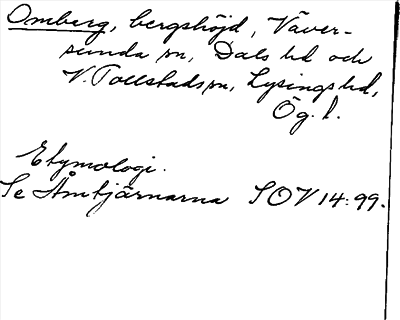 Omberg, bergshöjd, Väver-
sunda sn, Dals hd och
V. Tollstads sn, Lysings hd,
Ög. l.
Etymologi.
Se Åmtjärnarna SOV 14:99.